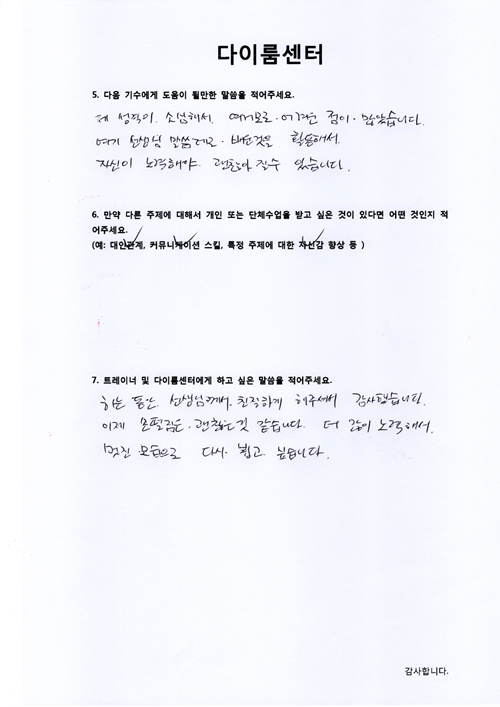 다이룸센터
5. 다음 기수에게 도움이 될만한 말씀을 적어주세요.
제 성격이 소심해서. 여러모로. 어려운 점이. 많았습니다.
여기 선생님 말씀대로. 배운것을 활용해서.
자신이 노력해야. 괜찮아 질수 있습니다.
6. 만약 다른 주제에 대해서 개인 또는 단체수업을 받고 싶은 것이 있다면 어떤 것인지 적
어주세요.
(예: 대인관계, 커뮤니케이션 스킬, 특정 주제에 대한 자신감 향상 등 )
7. 트레이너 및 다이룸센터에게 하고 싶은 말씀을 적어주세요.
하는 동안 선생님께서. 친절하게 해주셔서 감사했습니다.
이제 괜찮은것 같습니다. 더 많이 노력해서.
멋진 모습으로 다시. 뵙고 싶습니다.
감사합니다.